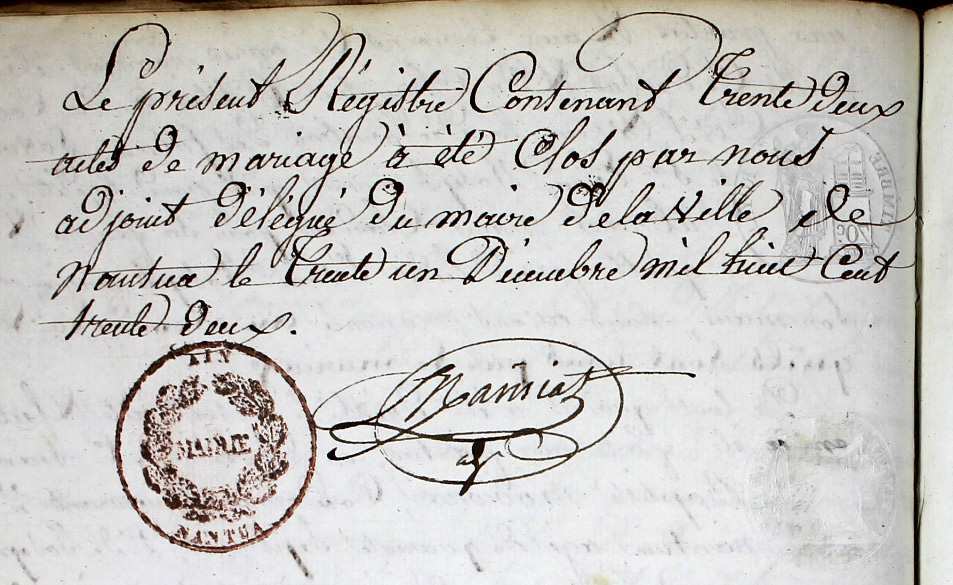 Le présent Régistre Contenant trente deux
actes de mariage à été Clos par nous
adjoint délégué du maire de la Ville de
Nantua le trente un Décembre mil huit Cent
trente deux.
AIN
MAIRIE
NANTUA